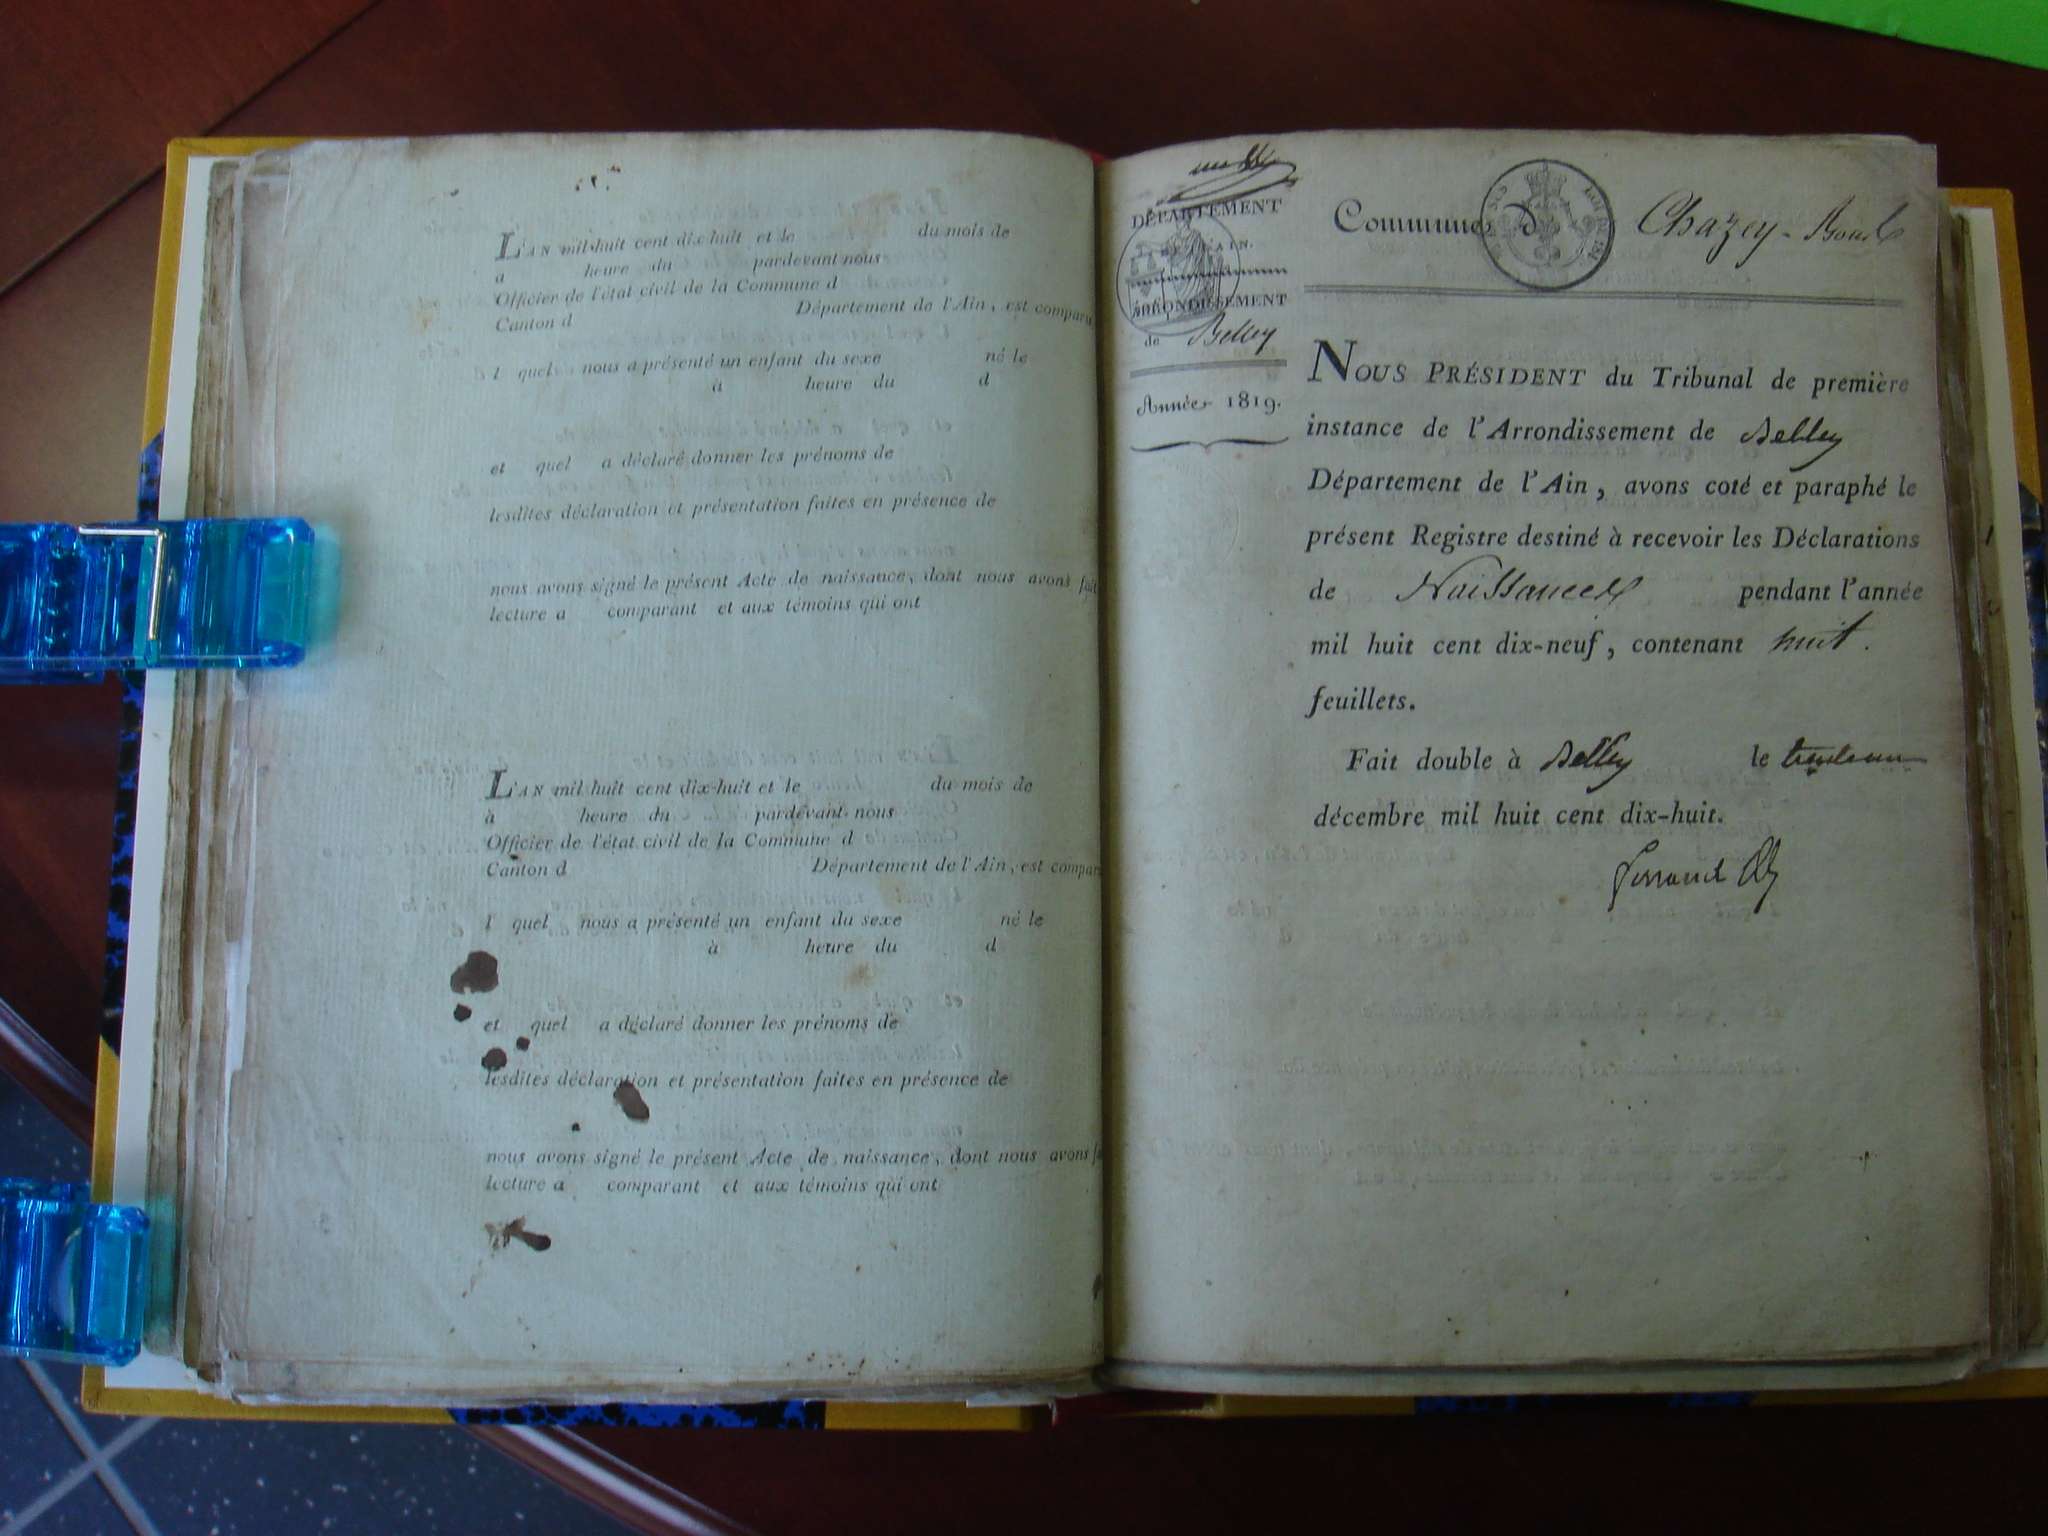 L'AN mil huit cent dix-huit et le du mois de
a heure du pardevant nous
Officier de l'état civil de la Commune d
Canton d Département de l'Ain, est comparu
l quel nous a présenté un enfant du sexe né le
à heure du d
et quel a déclaré donner les prénoms de
lesdites déclaration et présentation faites en présence de
nous avons signé le présent Acte de naissance, dont nous avons fait
lecture a comparant et aux témoins qui ont
L'AN mil huit cent dix-huit et le du mois de
à heure du pardevant nous
Officier de l'état civil de la Commune d
Canton d Département de l'Ain, est compar
l quel nous a présenté un enfant du sexe né le
à heure du d
et quel a déclaré donner les prénoms de
lesdites déclaration et présentation faites en présence de
nous avons signé le présent Acte de naissance, dont nous avons fa
lecture a comparant et aux témoins qui ont
DÉPARTEMENT
L'AIN.
ARRONDISSEMENT
de Belley
Année 1819.
Commune d Chazey-
NOUS PRÉSIDENT du Tribunal de première
instance de l'Arrondissement de Belley
Département de l'Ain, avons coté et paraphé le
présent Registre destiné à recevoir les Déclarations
de Naissances pendant l'année
mil huit cent dix-neuf, contenant huit.
feuillets.
Fait double à Belley le trente un
décembre mil huit cent dix-huit.